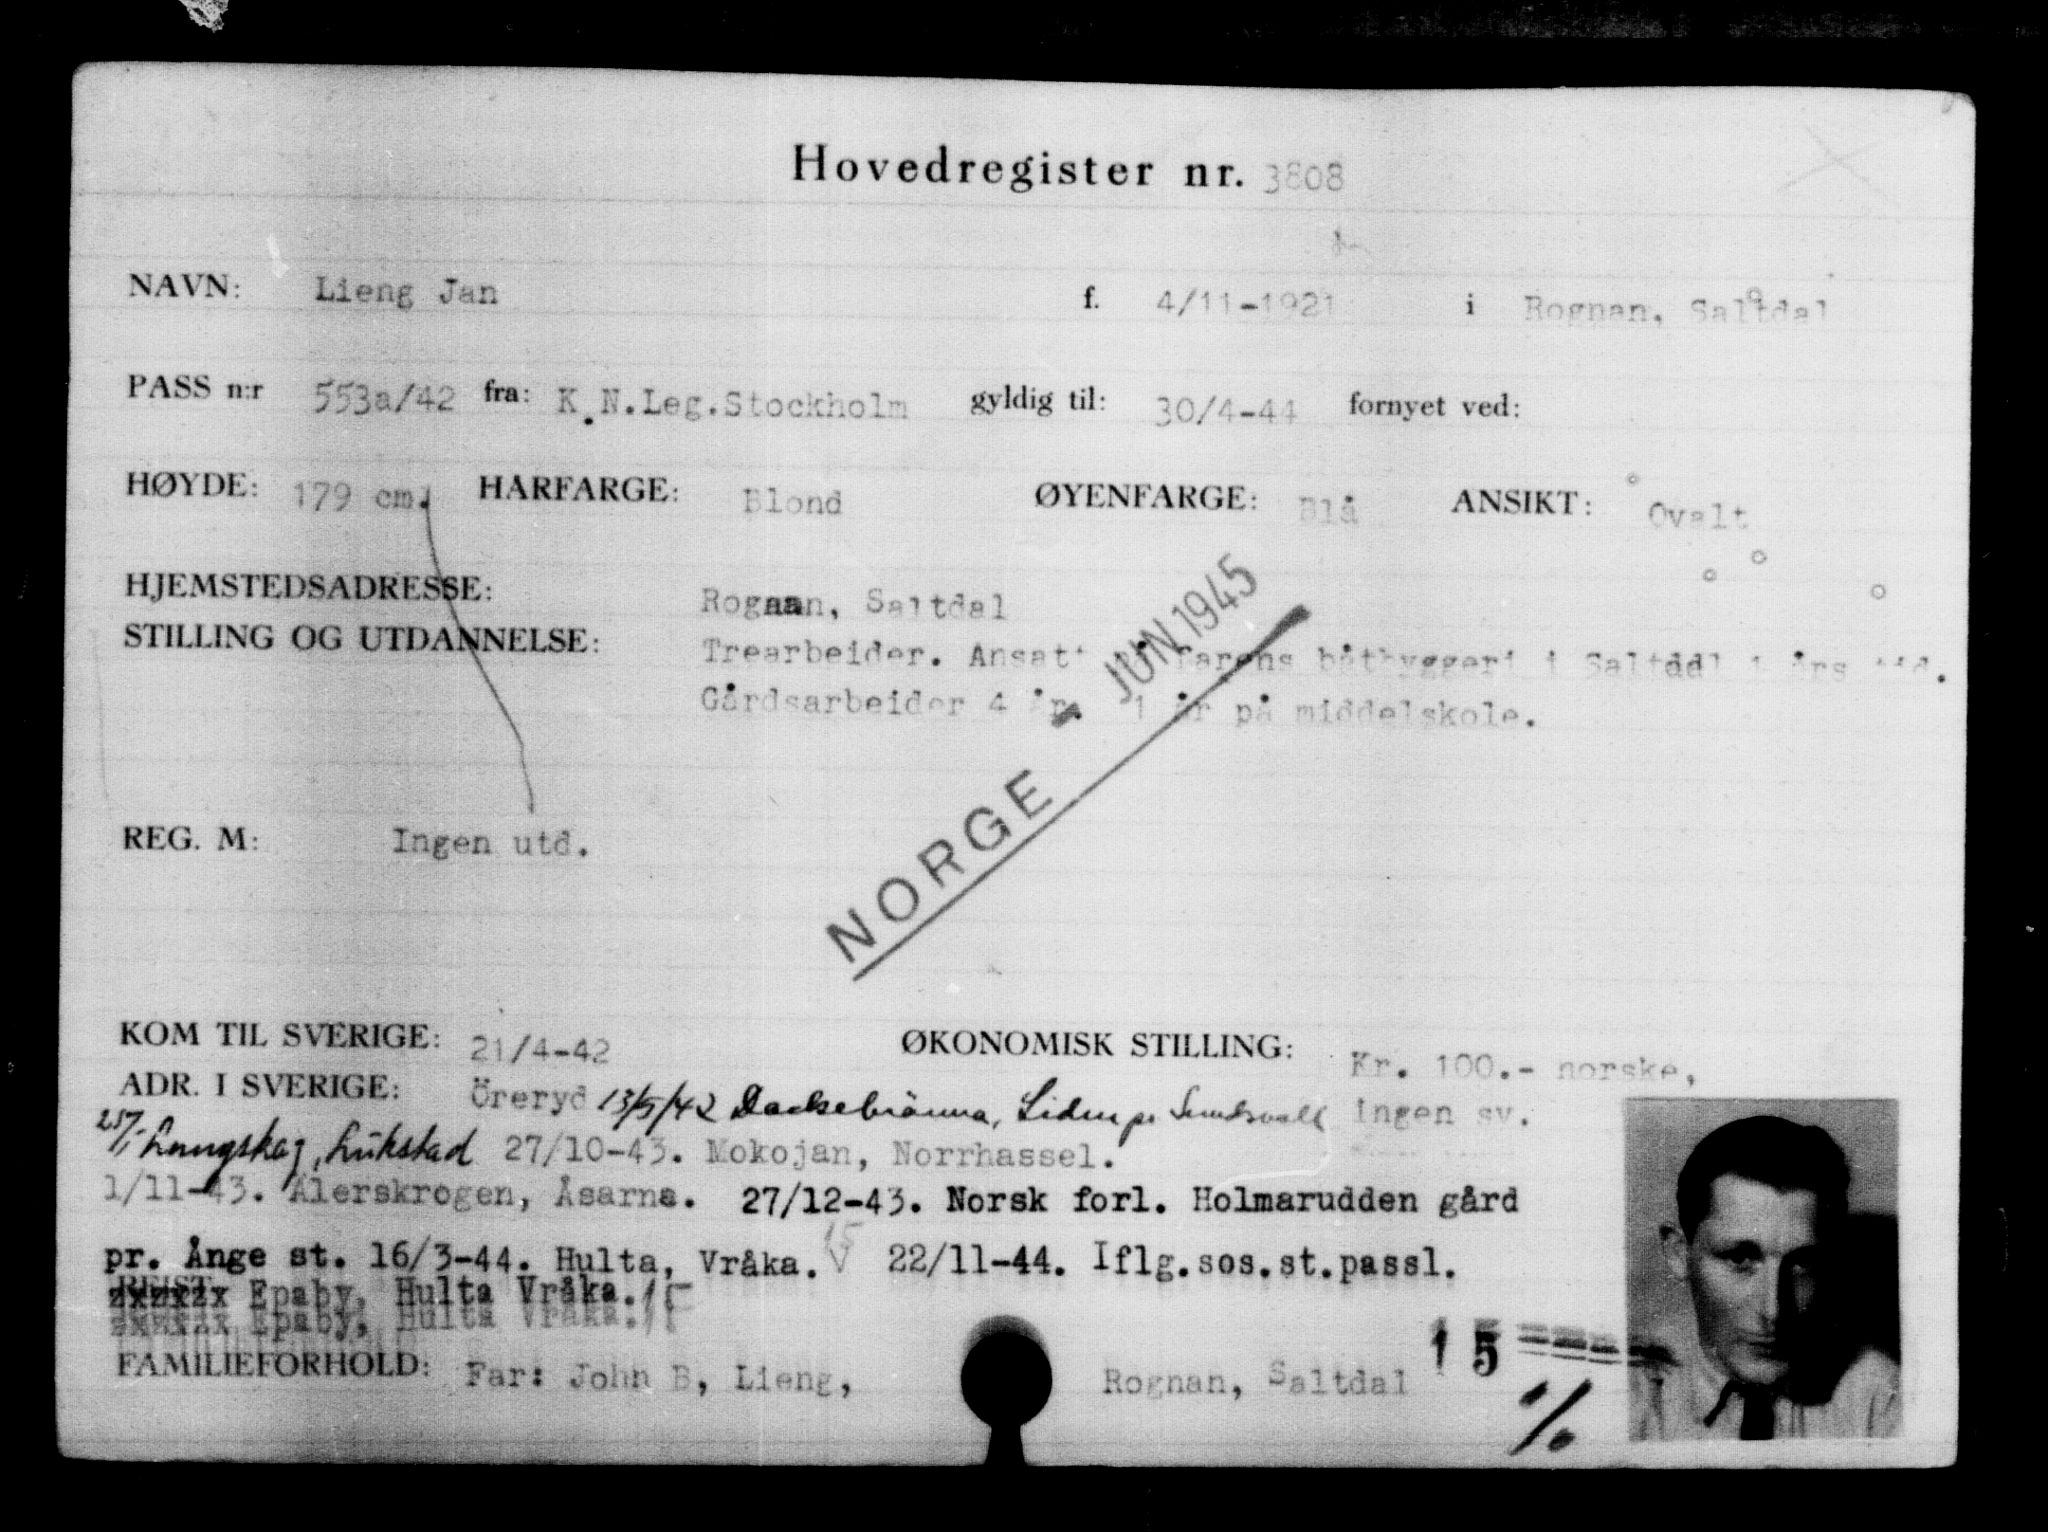 Hovedregister nr. 3808
NAVN: Lieng Jan f. 4/11-1921 i Rognan, Saltdal
PASS n:r 553a/42 fra: K.N.Leg.Stockholm gyldig til: 30/4-44 fornyet ved:
HØYDE: 179 cm. HARFARGE: Blond ØYENFARGE: Blå ANSIKT: Ovalt
HJEMSTEDSADRESSE: Rognan, Saltdal
STILLING OG UTDANNELSE: Trearbeider. Ansatt farens båtbyggeri i Saltdal års tid.
Gårdsarbeider 4 år. 1 år på middelskole.
- JUN 1945
NORGE
REG. M: Ingen utd.
KOM TIL SVERIGE: 21/4-42 ØKONOMISK STILLING: Kr. 100.- norske,
ADR. I SVERIGE: Öreryd 13/5/42 Liden pr Sundsvall ingen sv.
27/10-43. Mokojan, Norrhassel.
1/11-43. Ålerskrogen, Åsarna. 27/12-43. Norsk forl. Holmarudden gård
pr. Ånge st. 16/3-44. Hulta, Vråka. V 15 22/11-44. Iflg.sos.st.passl.
REIST: Epaby, Hulta Vråka. 15
Epaby, Hulta Vråka.
FAMILIEFORHOLD: Far: John B, Lieng, Rognan, Saltdal 15